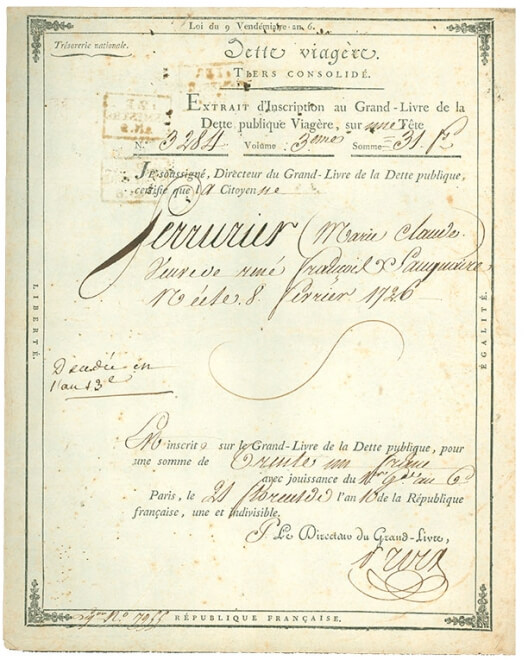 Loi du 9 Vendémiaire an 6.
Trésorerie nationale.
Dette viagère.
TIERS CONSOLIDÉ.
EXTRAIT d'Inscription au Grand-Livre de la
Dette publique Viagère, sur une Tête
N.° 3284 Volume 3eme Somme 31. f.
Je soussigné, Directeur du Grand-Livre de la Dette publique,
certifie que la Citoyenne
Serrurier (Marie Claude
Veuve de rené françois
Née le 8. février 1726
LIBERTÉ.
ÉGALITÉ.
Décédée en
l'an 13e
Est inscrite sur le Grand-Livre de la Dette publique, pour
une somme de Trente un francs
avec jouissance du 1er
Paris, le 21 l'an 10 de la République
française, une et indivisible.
P Le Directeur du Grand-Livre,
N° 7955
RÉPUBLIQUE FRANÇAISE.